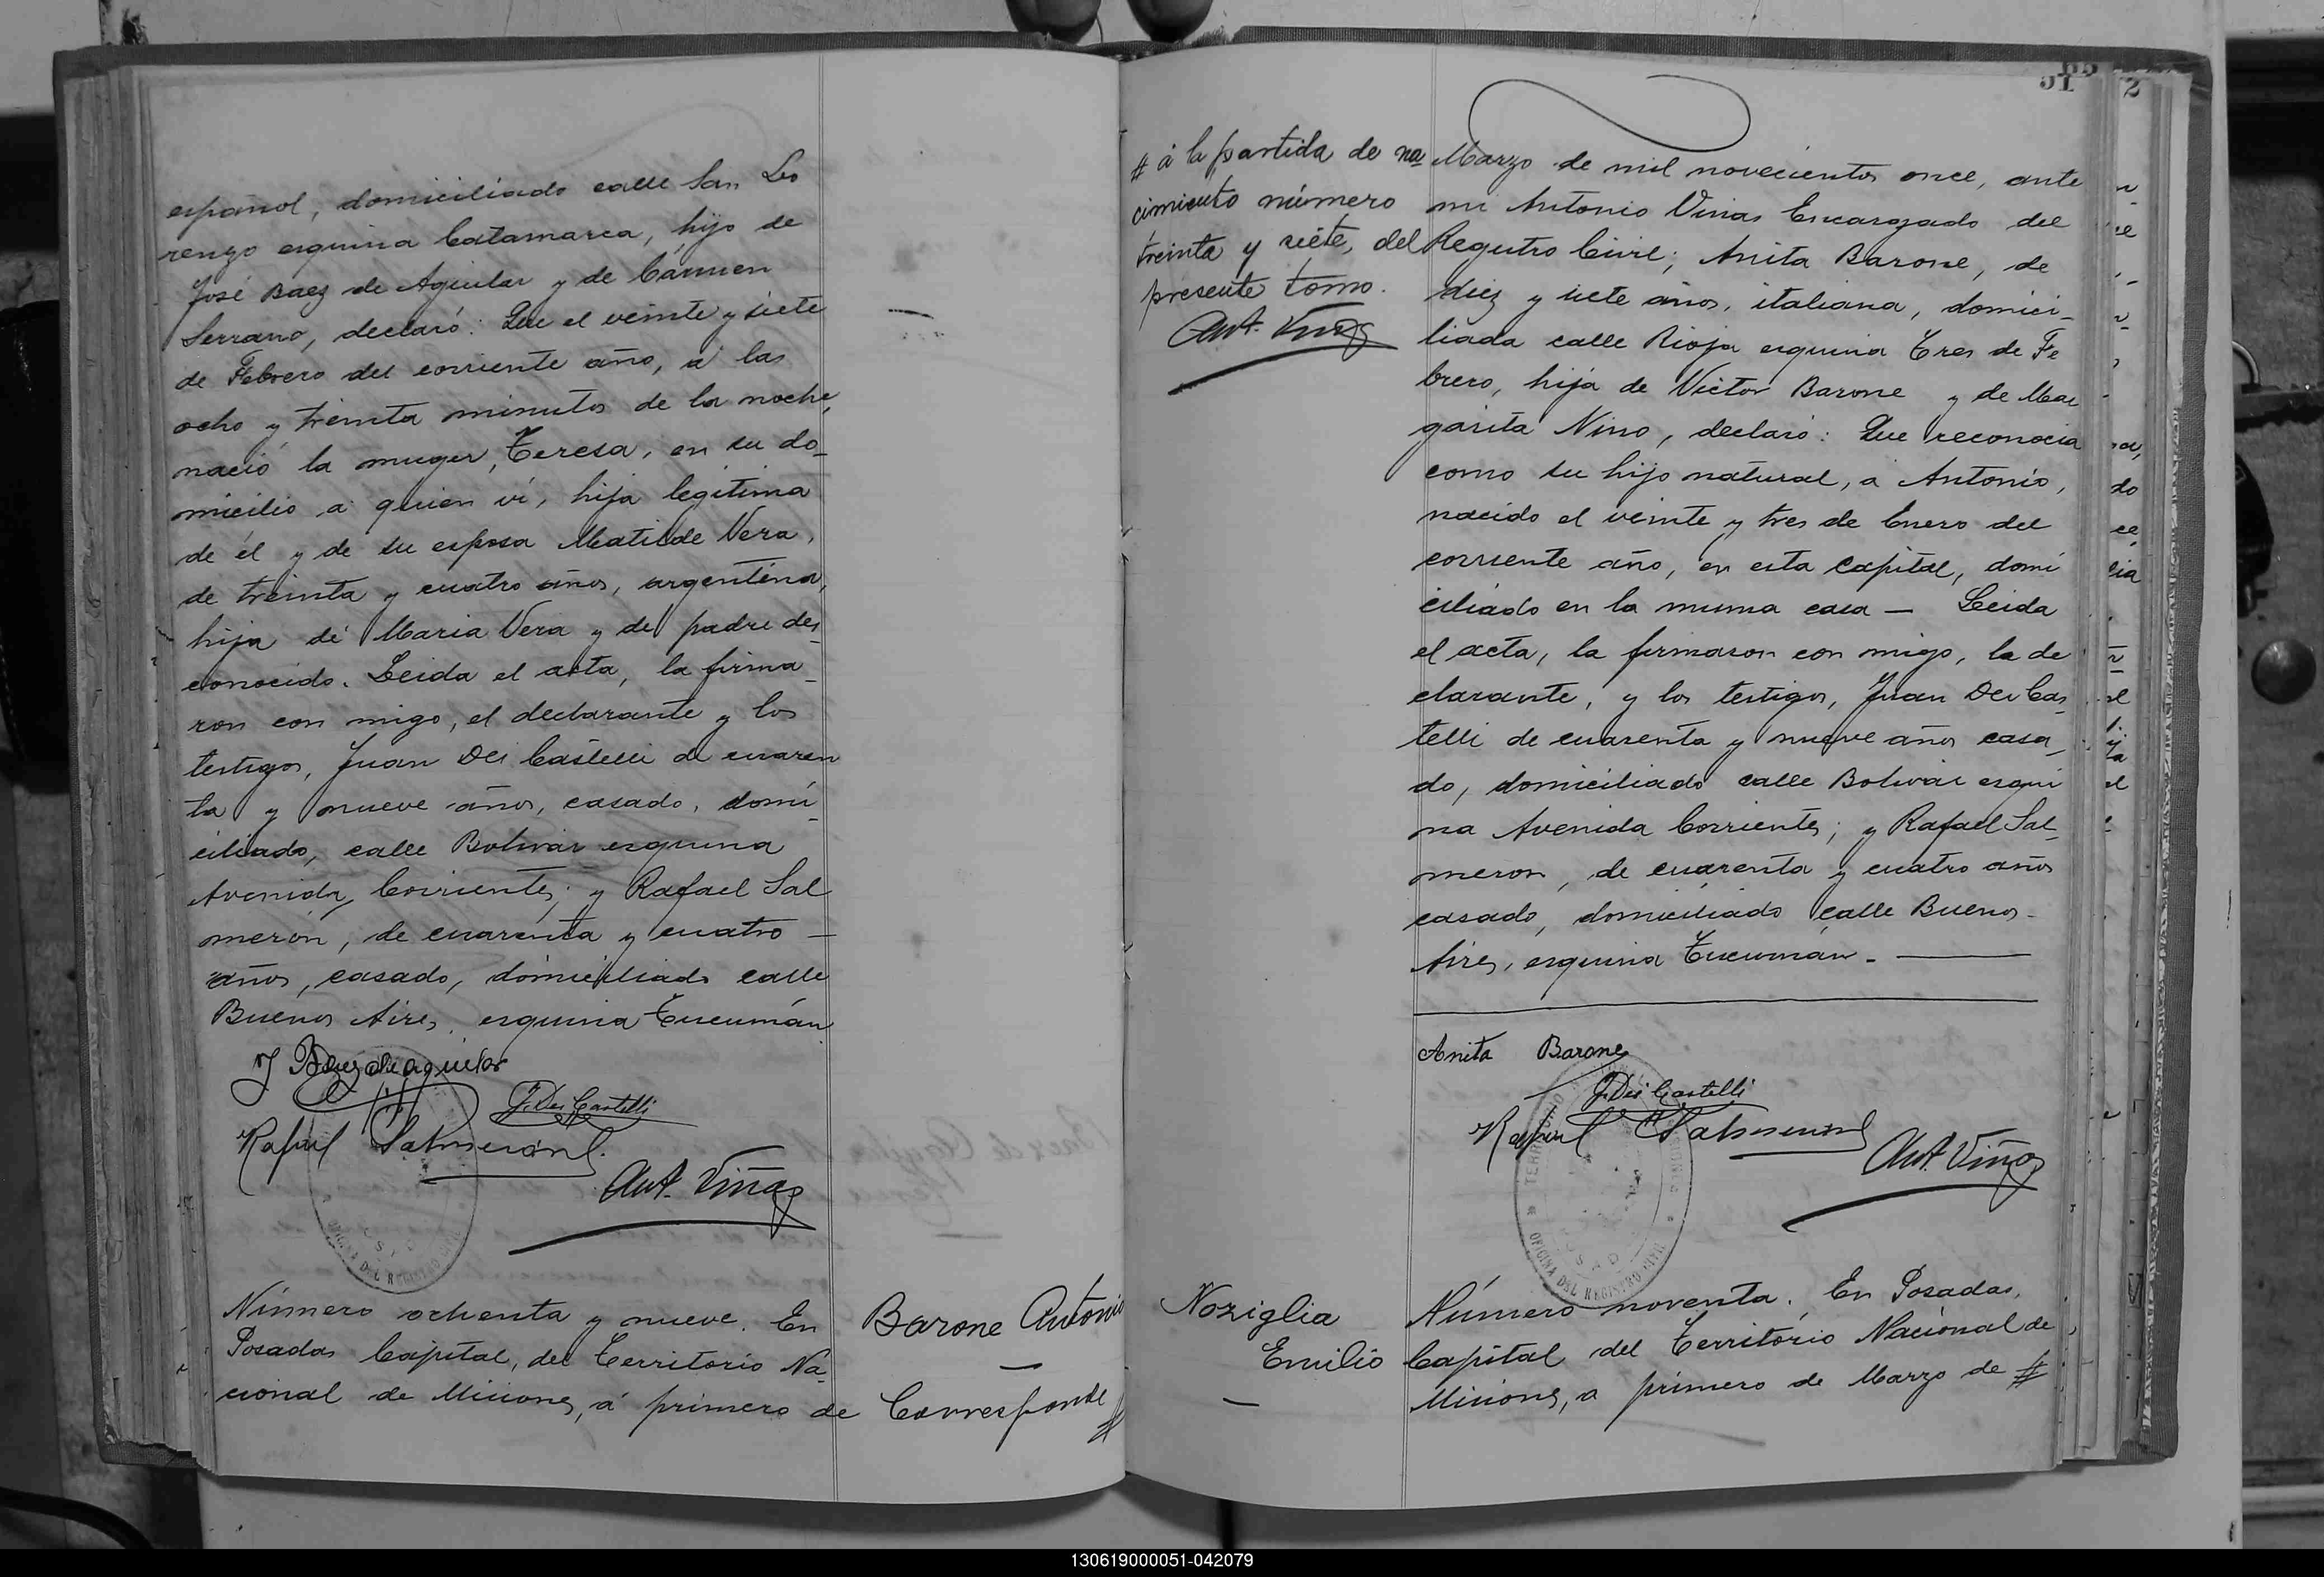 español, domiciliado calle San Lo
renzo esquina Catamarca, hijo de
José Baez de Aguilar y de Cármen
Serrano, declaró: Que el veinte y siete
de Febrero del corriente año, a las
ocho y treinta minutos de la noche,
nació la muger, Teresa, en su do_
micilio a quien vi, hija legitima
de él y de su esposa Matilde Vera,
de treinta y cuatro años, argentina,
hija de Maria Vera y de padre des_
conocido. Leida el acta, la firma_
ron con migo, el declarante y los
testigos, Juan Dei Castelli de cuaren
ta y nueve años, casado, domi_
ciliado, calle Bolivar esquina
Avenida Corrientes; y Rafael Sal
merón, de cuarenta y cuatro —
años, casado, domiciliado calle
Buenos Aires, esquina Tucumán
J Baez de aguilar
J. Dei Castelli
Rafael Salmerón
Ant. Viñas
OFICINA DEL REGISTRO CIVIL
Número ochenta y nueve. En
Posadas Capital, del Territorio Na_
cional de Misiones, á primero de
Barone Antonio
—
Corresponde #
# á la partida de na
cimiento número
treinta y siete, del
presente tomo.
Ant. Viñas
51
65
2
Marzo de mil novecientos once, ante
mi Antonio Viñas Encargado del
Registro Civil; Anita Barone, de
diez y siete años, italiana, domici_
liada calle Rioja esquina Tres de Fe
brero, hija de Victor Barone y de Mar
garita Nino, declaró: Que reconocia
como su hijo natural, a Antonio,
nacido el veinte y tres de Enero del
corriente año, en esta Capital, domi
ciliado en la misma casa — Leida
el acta, la firmaron con migo, la de
clarante, y los testigos, Juan Dei Cas_
telli de cuarenta y nueve años casa_
do, domiciliado calle Bolivar esqui
na Avenida Corrientes; y Rafael Sal_
meron, de cuarenta y cuatro años
casado, domiciliado calle Buenos_
Aires, esquina Tucuman. —
Anita Barone
J. Dei Castelli
Rafael Salmerón
Ant. Viñas
OFICINA DEL REGISTRO CIVIL
Noziglia
Emilio
—
Número noventa. En Posadas,
Capital del Territorio Nacional de
Misiones, a primero de Marzo de #
130619000051-042079